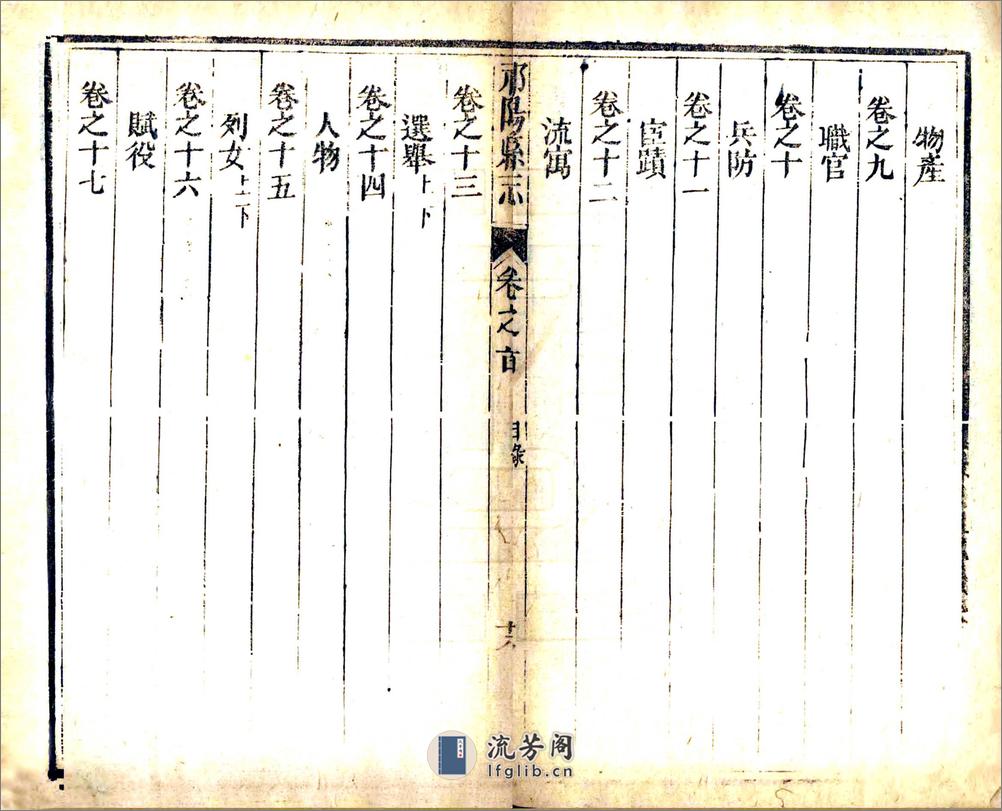 物產
卷之九
職官
卷之十
兵防
卷之十一
宦蹟
卷之十二
流寓
祁陽縣志
卷之首
目錄
十六
卷之十三
選舉上下
卷之十四
人物
卷之十五
列女上下
卷之十六
賦役
卷之十七
流芳阁
lfglib.cn